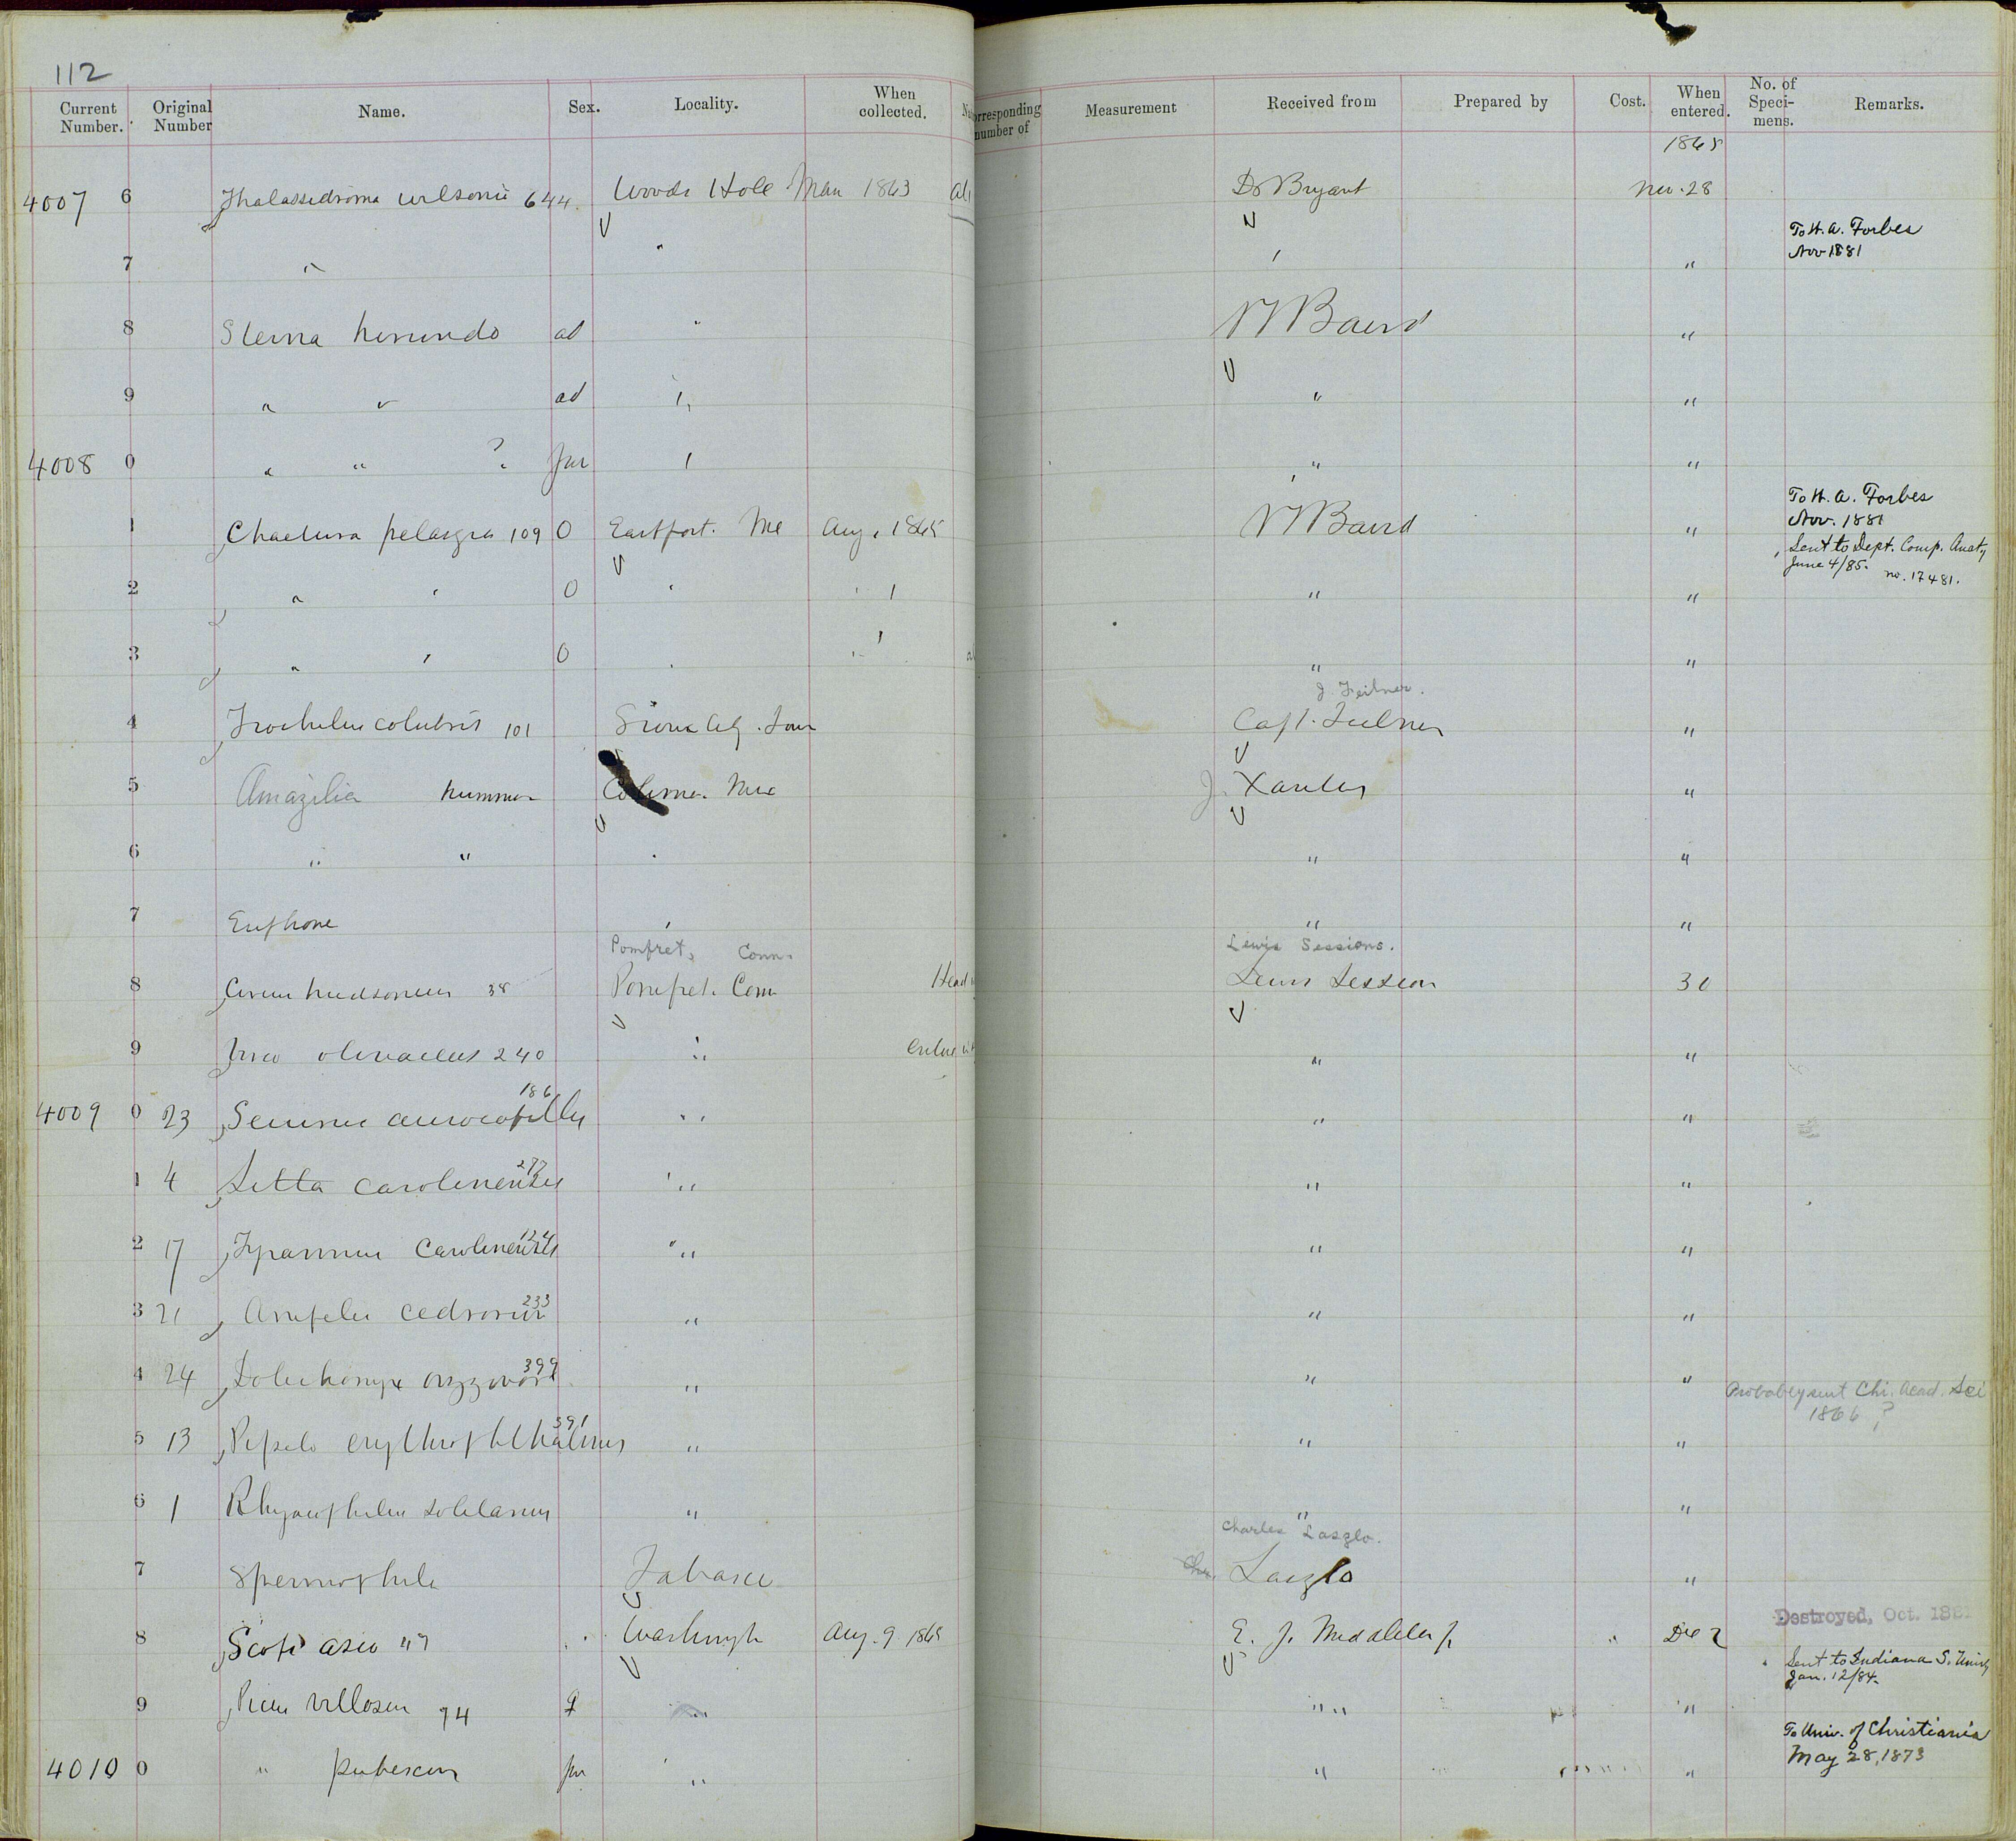 112
Current Number. Original Number Name. Sex. Locality. When collected. orresponding number of Measurement Received from Prepared by Cost. When entered. No. of Speci- mens. Remarks.
1865
4007 6 Thalassidroma wilsonii 644 Woods Hole Mass 1863 Dr Bryant Nov. 28
7 " " " " To W. A. Forbes
Nov 1881
8 Sterna hirundo ad " Baird "
9 " " ad " " "
4008 0 " " ? Juv " " "
1 Chaetura pelasgia 109 0 Eastport. Me Aug. 1865 Baird " To W. A. Forbes
Nov. 1881
Sent to Dept. Comp. Anaty
June 4/85. no. 17481.
2 " " 0 " " " "
3 " " 0 " " " "
J. Feilner.
4 Trochilus colubris 101 Sioux City. Iowa Capt. Feilner "
5 Amazilia hummer Colima. Mex J. Xantus "
6 " " " " "
7 Euphone " " "
Pomfret, Conn. Lewis Sessions.
8 Circus hudsonius 38 Pomfret. Conn Head Lewis Session 30
9 Vireo olivaceus 240 " Entire " "
4009 0 23 Seiurus aurocapillus 186 " " "
1 4 Sitta carolinensis 277 " " "
2 17 Tyrannus carolinensis 124 " " "
3 21 Ampelis cedrorum 233 " " "
4 24 Dolichonyx oryzivora 399 " " " Probably sent Chi. Acad. Sci
1866 ?
5 13 Pipilo erythrophthalmus 391 " " "
6 1 Rhyacophilus solitarius " " "
Charles Laszlo.
7 Spermophila Tabasco Chs. Laszlo "
8 Scops asio 49 Washingn Aug. 9 1865 E. J. Middleton " Dec 2 Destroyed, Oct. 188
9 Picus villosus 74 ♀ " " " " Sent to Indiana S. Univty
Jan. 12/84.
4010 0 " pubescens juv " " " To Univ. of Christiania
May 28, 1873